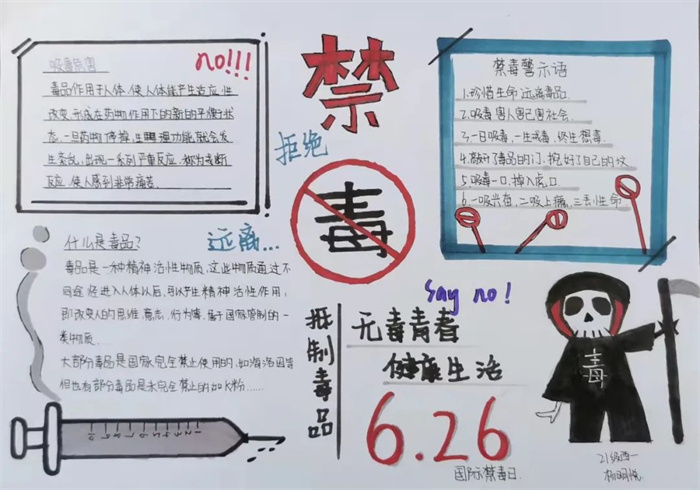 吸毒危害
no!!!
毒品作用于人体,使人体能产生适应性
改变,形成在药物作用下的新的平衡状
态,一旦药物停掉,生理功能就会发
生紊乱,出现一系列严重反应,称为戒断
反应,使人感到非常痛苦.
禁
拒绝
毒
远离...
禁毒警示语
1.珍惜生命 远离毒品
2.吸毒 害人害己害社会
3.一日吸毒,一生戒毒,终生想毒.
4.敲开了毒品的门,挖好了自己的坟
5.吸毒一口,掉入虎口
6.一吸兴奋,二吸上瘾,三丢性命
什么是毒品?
毒品是一种精神活性物质,这些物质通过不
同途径进入人体以后,可以产生精神活性作用,
即改变人的思维,意志,行为等,属于国际管制的一
类物质.
大部分毒品是国际完全禁止使用的,如海洛因等
但也有部分毒品是未完全禁止的如K粉......
抵制毒品
Say no!
无毒青春
健康生活
6.26
国际禁毒日.
毒
21级西一